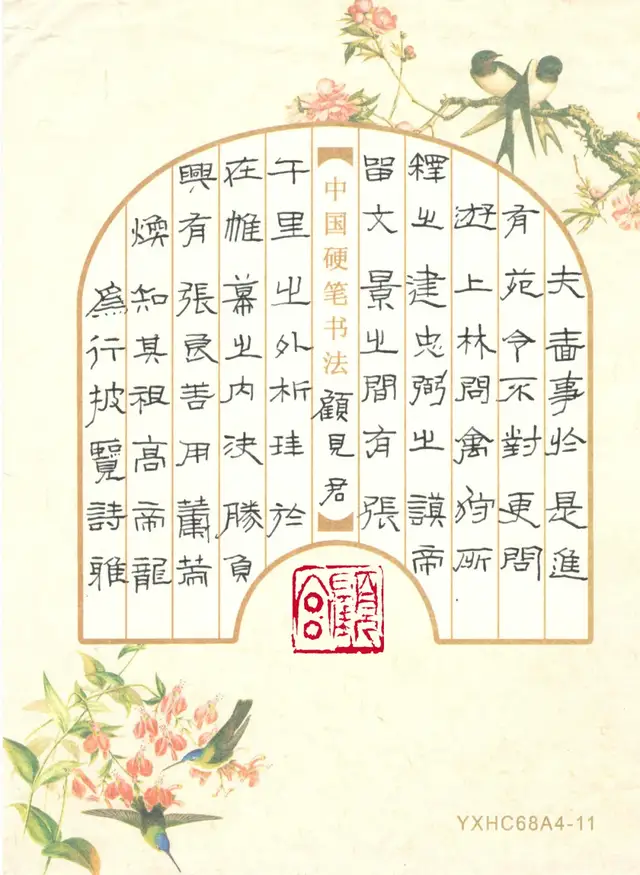 爲行披覽詩雅
煥知其祖高帝龍
興有張良善用籌策
在帷幕之內決勝負
千里之外析珪於
中国硬笔书法
顧見君
留文景之間有張
釋之建忠弼之謨帝
遊上林問禽狩所
有苑令不對更問
夫嗇事於是進
YXHC68A4-11